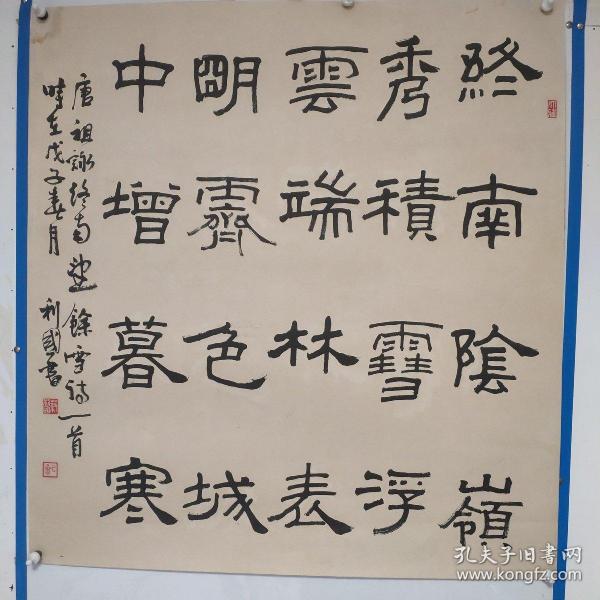 終南陰嶺
秀積雪浮
雲端林表
明霽色城
中增暮寒
唐祖詠終南望餘雪詩一首
時在戊子春月
利國書
孔夫子旧書网
www.kongfz.com